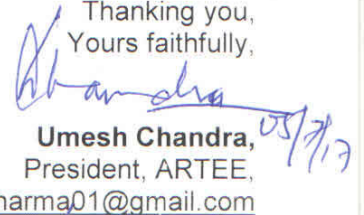 Thanking you,
Yours faithfully,
Chandra
05/7/17
Umesh Chandra,
President, ARTEE,
harma01@gmail.com